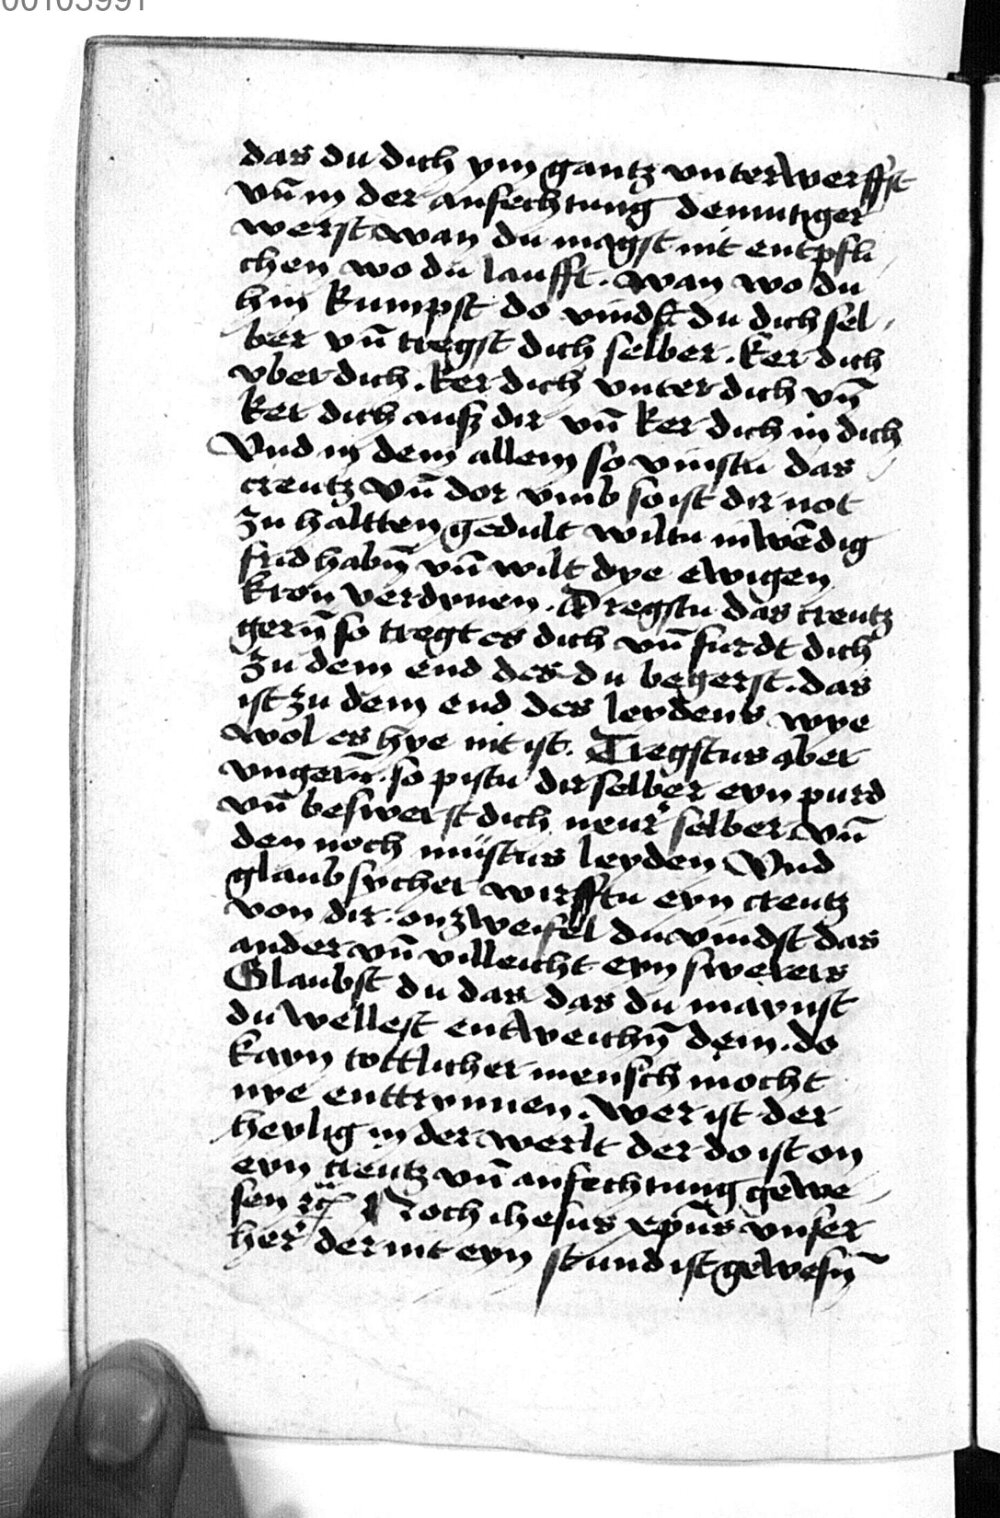 00105991
das du dich ym gantz vnterwerffst
vn̄ in der anfechtung demutiger
werst wan du magst nit entpfli
chen wo du laufft. wan wo du
hin kumpst do vindst du dich sel
ber vn̄ tregst dich selber. ker dich
vber dich. ker dich vnter dich vn̄
ker dich ausz dir vn̄ ker dich in dich
Vnd in dem allem so vinstu das
creutz vn̄ dor vmb so ist dir not
zu haltten gedult wiltu inwēdig
frid habn̄ vn̄ wilt dye ewigen
kron verdynen. Tregstu das creutz
gern̄ so tregt es dich vn̄ furdt dich
zu dem end des du begerst. das
ist zu dem end des leydens wye
wol es hye nit ist. Tregstus aber
vngern̄. so pistu dir selber eyn purd
vn̄ beswerst dich neur selber vn̄
den noch müstus leyden Vnd
glaub sycher wirfftu eyn creutz
von dir. on zweifel du vindst das
ander vn̄ villeicht eyn swerers
Glaubst du das das du maynst
du wellest entweichn̄ dem. do
kayn tottlicher mensch mocht
nye enttrynnen. wer ist der
heylig in der werlt der do ist on
eyn creutz vn̄ anfechtung gewe
sen rc̄ Noch ihesus xp̄us vnser
her der nit eyn stund ist gewesn̄